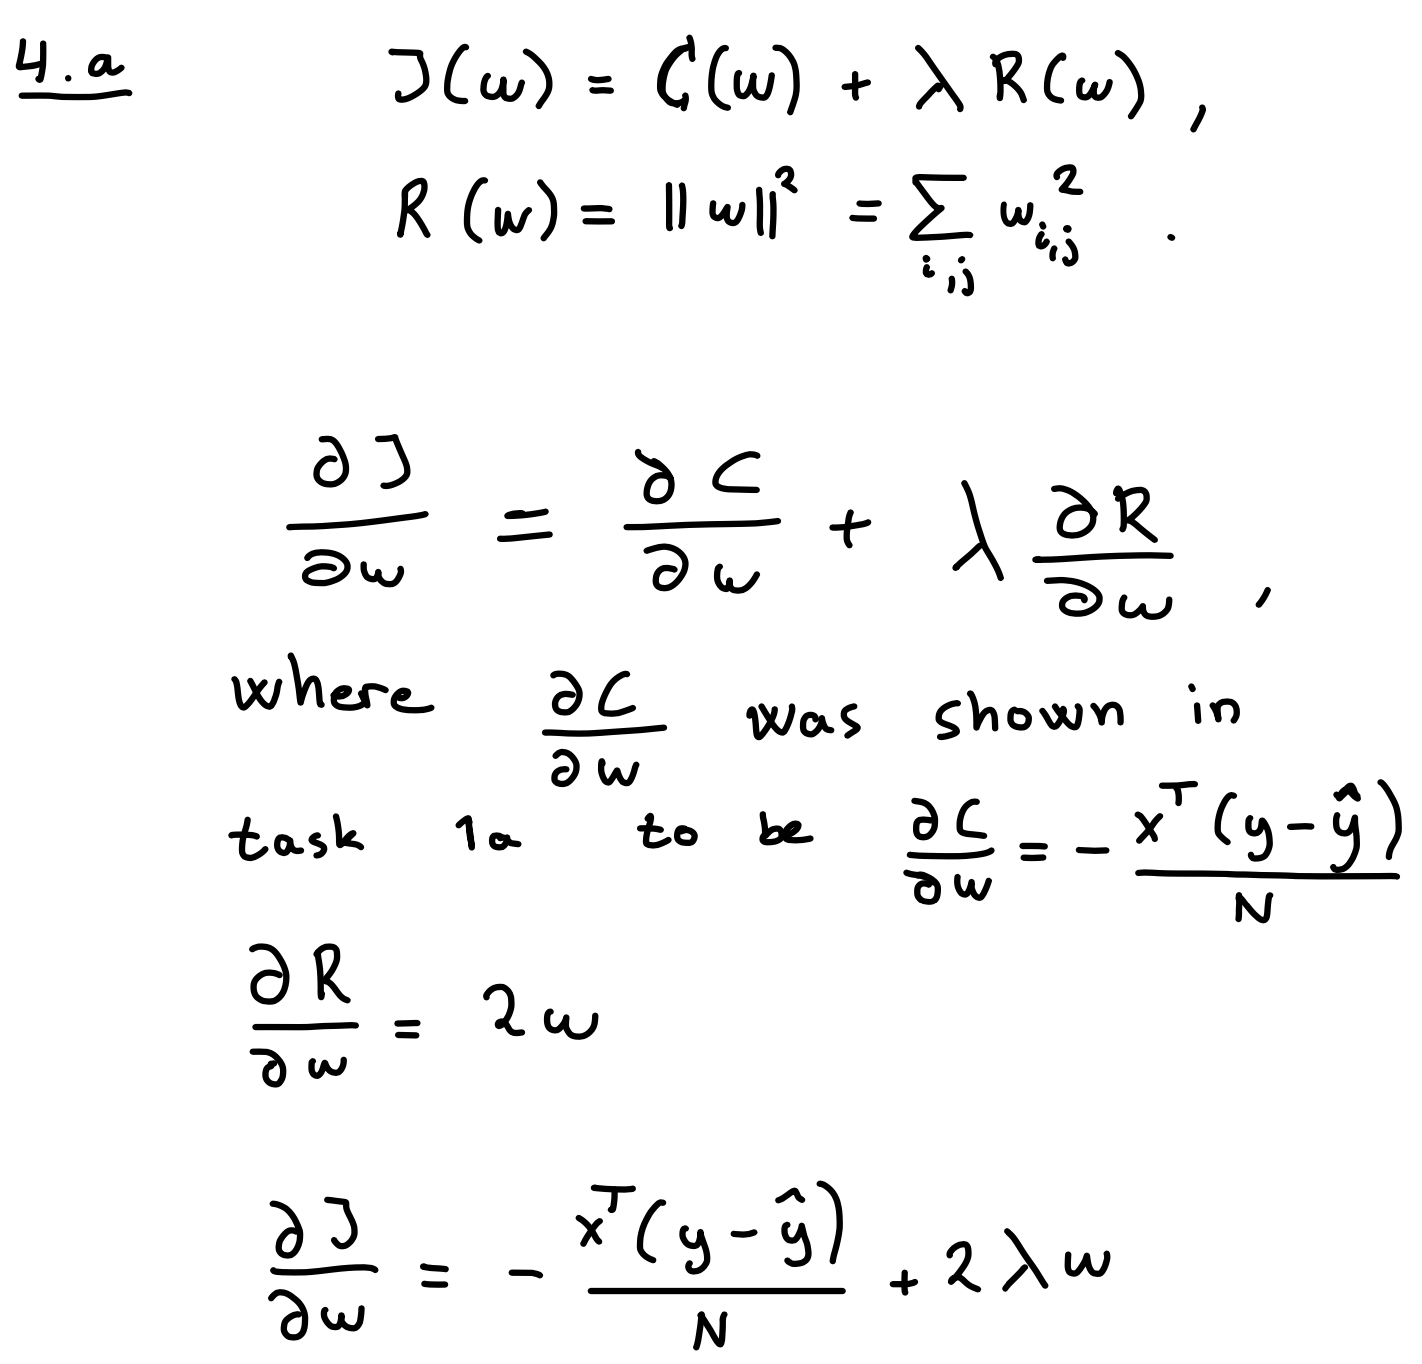 4.a J(w) = C(w) + λ R(w) ,
R (w) = ||w||² = ∑_{i,j} w_{i,j}² .
∂J/∂w = ∂C/∂w + λ ∂R/∂w ,
where ∂C/∂w was shown in
task 1a to be ∂C/∂w = - x^T (y - ŷ) / N
∂R/∂w = 2w
∂J/∂w = - x^T (y - ŷ) / N + 2λw